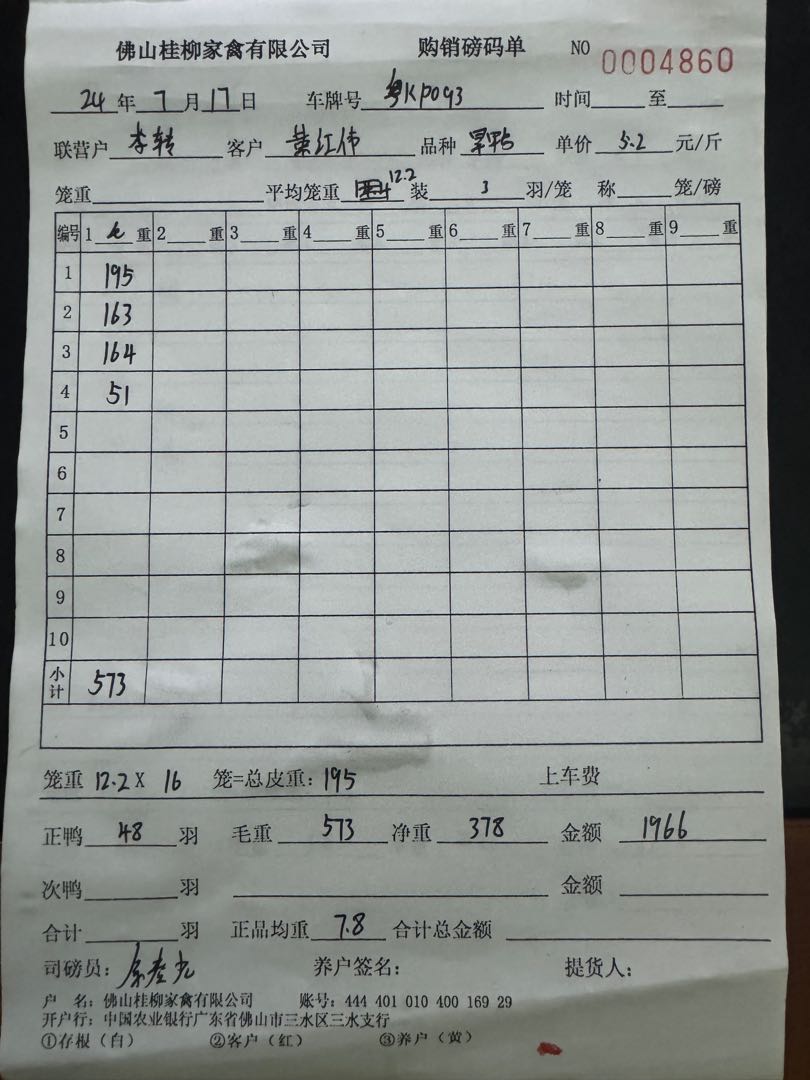 佛山桂柳家禽有限公司 购销磅码单 NO 0004860
24年7月17日 车牌号 粤KP093 时间 至
联营户 李转 客户 叶红伟 品种 旱鸭 单价 5.2 元/斤
笼重 平均笼重 12.2 装 3 羽/笼 称 笼/磅
编号 1 毛 重 2 重 3 重 4 重 5 重 6 重 7 重 8 重 9 重
1 195
2 163
3 164
4 51
5
6
7
8
9
10
小计 573
笼重 12.2 X 16 笼=总皮重: 195 上车费
正鸭 48 羽 毛重 573 净重 378 金额 1966
次鸭 羽 金额
合计 羽 正品均重 7.8 合计总金额
司磅员: 养户签名: 提货人:
户 名: 佛山桂柳家禽有限公司 账号: 444 401 010 400 169 29
开户行: 中国农业银行广东省佛山市三水区三水支行
①存根(白) ②客户(红) ③养户(黄)